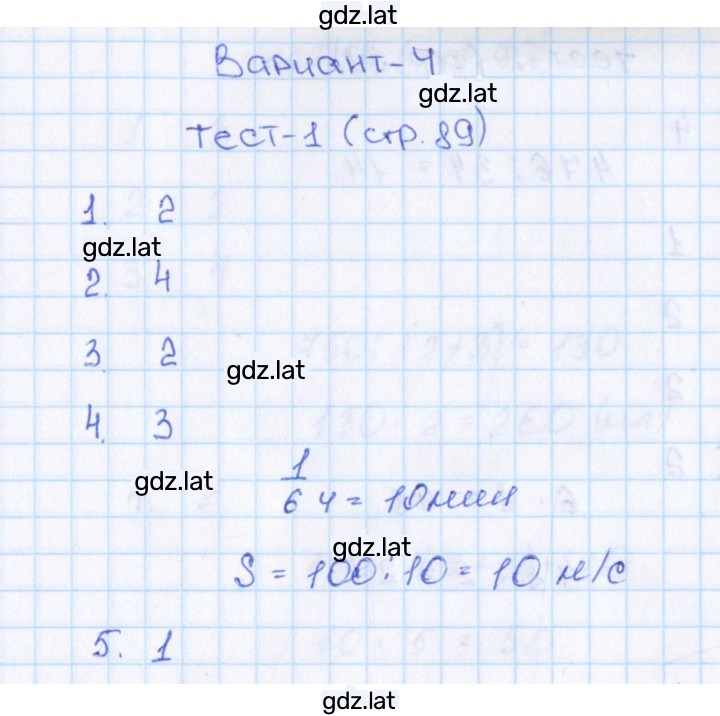 gdz.lat
Вариант-4
gdz.lat
тест-1 (стр. 89)
1. 2
gdz.lat
2. 4
3. 2
gdz.lat
4. 3
gdz.lat
1/6 ч = 10 мин
gdz.lat
S = 100 : 10 = 10 м/с
5. 1
gdz.lat